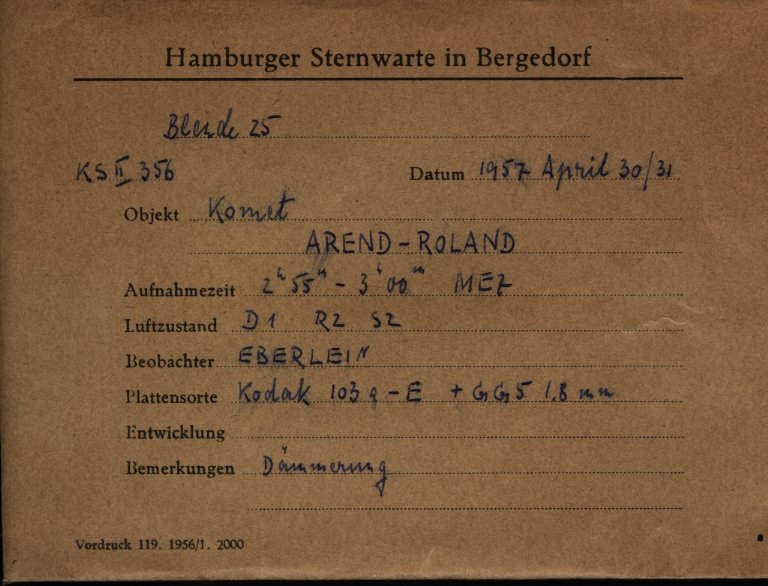 Hamburger Sternwarte in Bergedorf
Blende 25
KS II 356 Datum 1957 April 30/31
Objekt Komet
AREND-ROLAND
Aufnahmezeit 2h 55m - 3h 00m MEZ
Luftzustand D1 R2 S2
Beobachter EBERLEIN
Plattensorte Kodak 103a-E + GG5 1,8 mm
Entwicklung
Bemerkungen Dämmerung
Vordruck 119. 1956/1. 2000